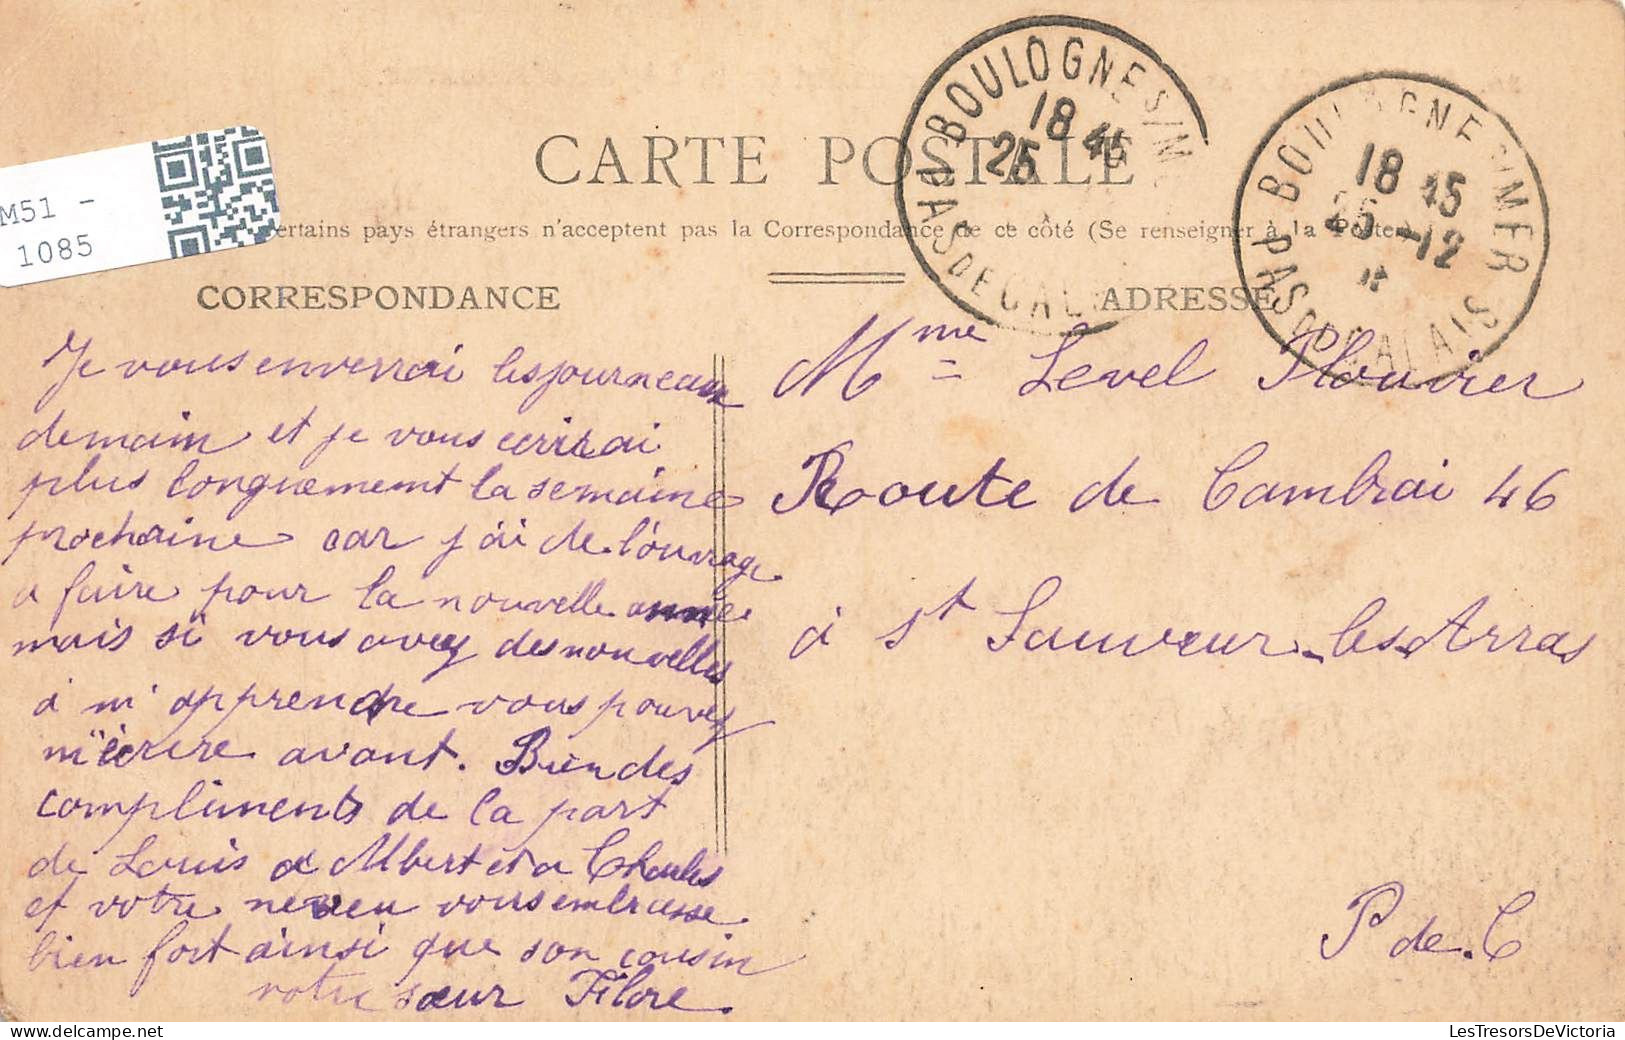 BOULOGNE S/M
18 45
25
PAS DE CAL
BOULOGNE S/MER
18 45
25 -12
PAS DE CALAIS
CARTE POSTALE
M51 -
1085
ertains pays étrangers n'acceptent pas la Correspondance de ce côté (Se renseigner à la Poste
CORRESPONDANCE
ADRESSE
Je vous enverrai les journeaux
demain et je vous ecrirai
plus longuement la semaine
prochaine car j'ai de l'ouvrage
a faire pour la nouvelle année
mais si vous avez des nouvelles
à m'apprendre vous pouvez
m'écrire avant. Bien des
compliments de la part
de Louis a Albert et a Charles
et votre neveu vous embrasse
bien fort ainsi que son cousin
votre sœur Flore.
Mme Level Plouvier
Route de Cambrai 46
à St Sauveur-les-Arras
P de C
LesTresorsDeVictoria